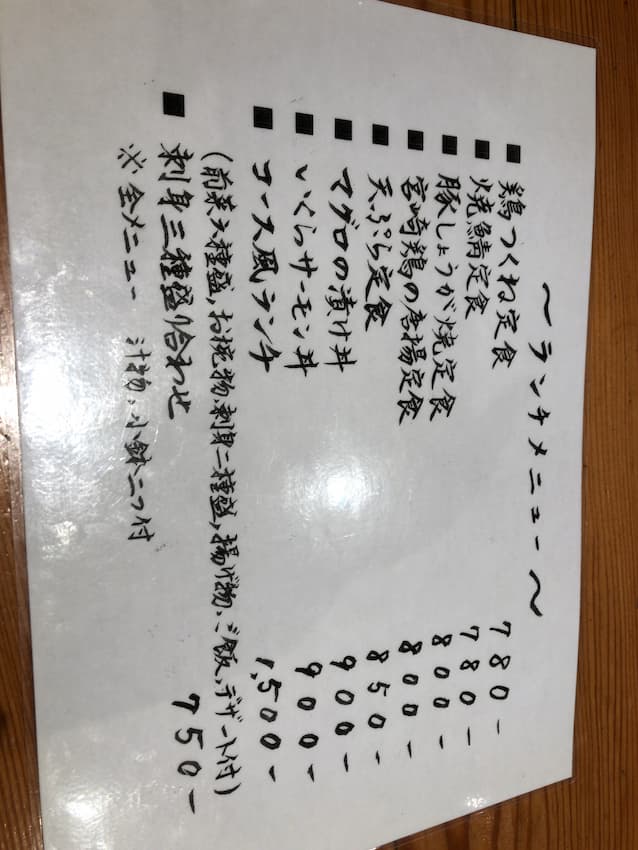 ～ランチメニュー～
■ 鶏つくね定食 780-
■ 焼鯖定食 780-
■ 豚しょうが焼定食 800-
■ 宮崎鶏の唐揚定食 800-
■ 天ぷら定食 850-
■ マグロの漬け丼 900-
■ いくらサーモン丼 900-
■ コース風ランチ 1,500-
(前菜六種盛,お椀物,刺身二種盛,揚げ物、ご飯,デザート付)
■ 刺身三種盛り合わせ 750-
※全メニュー 汁物、小鉢二つ付